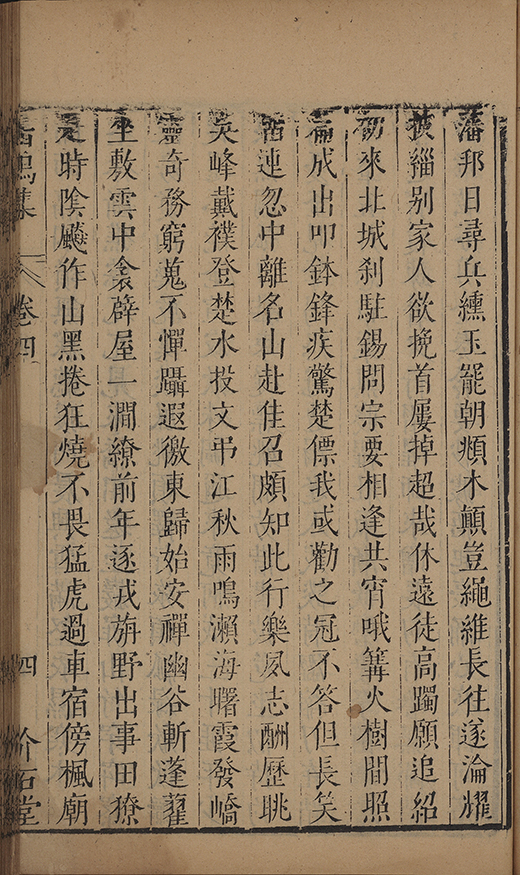 潘邦日尋兵纁玉罷朝頫木顛豈繩維長往遂淪耀
披緇别家人欲挽首屢掉超哉休遠徒高躅願追紹
初來北城刹駐錫問宗要相逢共宵哦篝火樹間照
篇成出叩鉢鋒疾驚楚僄我或勸之冠不答但長笑
留連忽中離名山赴佳召頗知此行樂夙志酬歷眺
吳峰戴襆登楚水投文弔江秋雨鳴瀨海曙霞發嶠
靈奇務窮蒐不憚躡遐徼東歸始安禪幽谷斬蓬藋
坐敷雲中衾辟屋一澗繚前年逐戎旃野出事田獠
是時陰飇作山黑捲狂燒不畏猛虎過車宿傍楓廟
鳴集 卷四 四 石堂